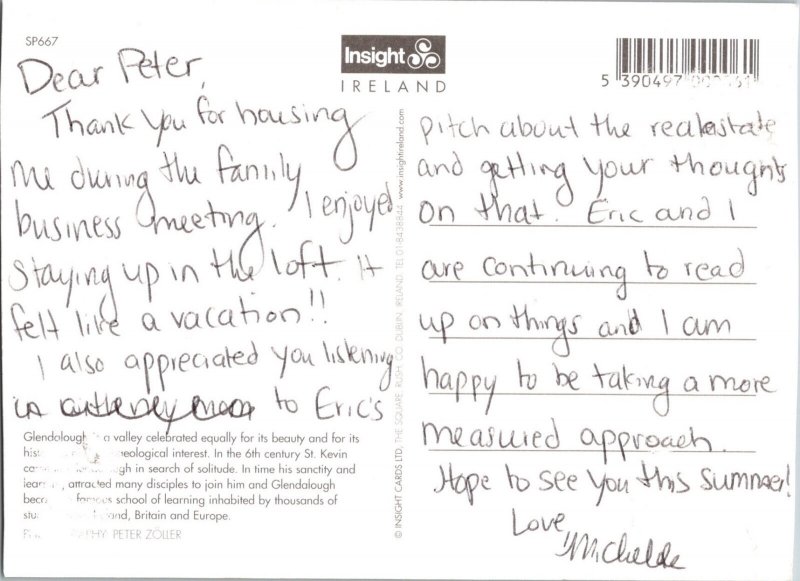 SP667
Insight
IRELAND
5 390497
Dear Peter,
Thank you for housing
me during the family
business meeting. I enjoyed
staying up in the loft. It
felt like a vacation!!
I also appreciated you listening
to Eric's
pitch about the realestate
and getting your thoughts
on that. Eric and I
are continuing to read
up on things and I am
happy to be taking a more
measured approach.
Hope to see you this summer!
Love,
Michelle
Glendolough a valley celebrated equally for its beauty and for its
eological interest. In the 6th century St. Kevin
gh in search of solitude. In time his sanctity and
attracted many disciples to join him and Glendalough
famous school of learning inhabited by thousands of
and, Britain and Europe.
PHY: PETER ZÖLLER
© INSIGHT CARDS LTD, THE SQUARE, RUSH, CO. DUBLIN, IRELAND. TEL 01-8438844 www.insightireland.com